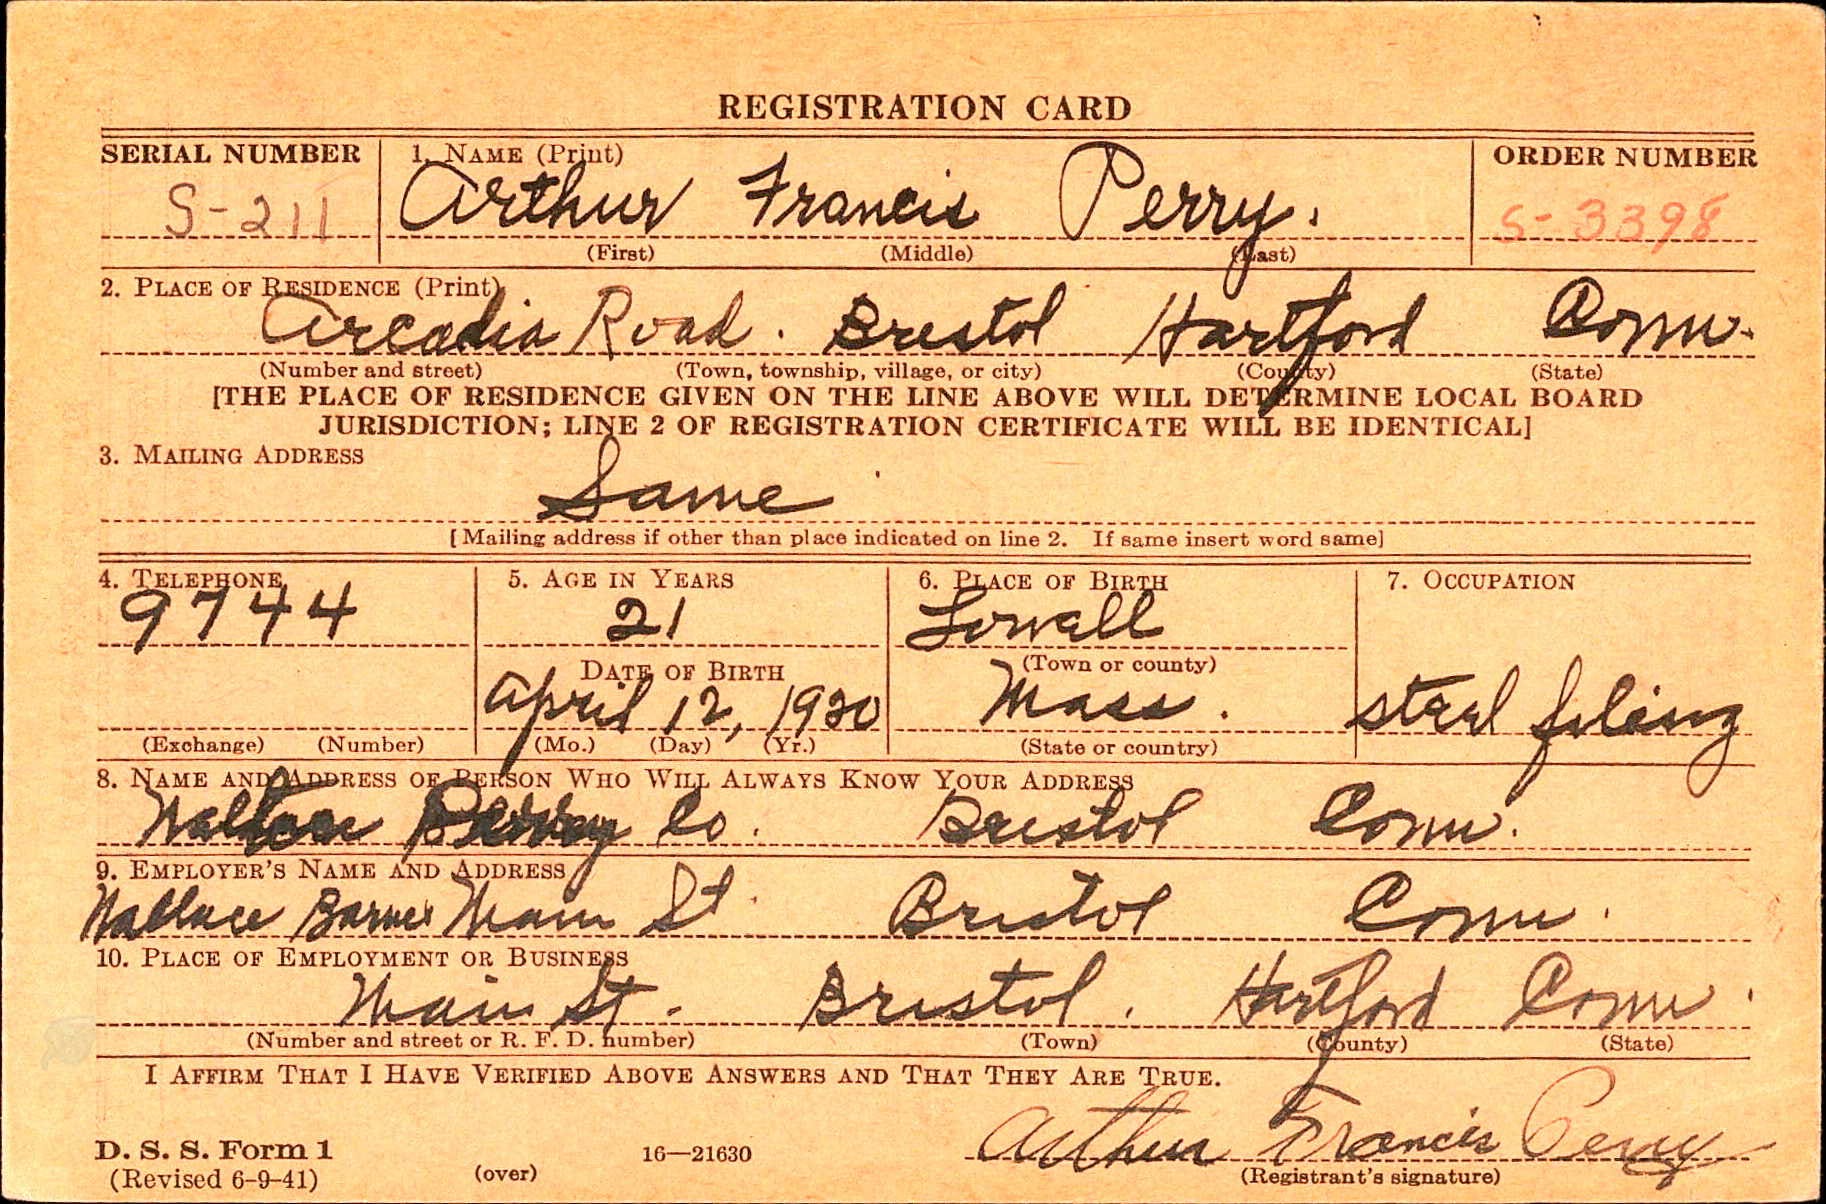 REGISTRATION CARD
SERIAL NUMBER 1. NAME (Print) ORDER NUMBER
S-211 Arthur Francis Perry. S-3398
(First) (Middle) (Last)
2. PLACE OF RESIDENCE (Print)
Arcadia Road. Bristol Hartford Conn.
(Number and street) (Town, township, village, or city) (County) (State)
[THE PLACE OF RESIDENCE GIVEN ON THE LINE ABOVE WILL DETERMINE LOCAL BOARD
JURISDICTION; LINE 2 OF REGISTRATION CERTIFICATE WILL BE IDENTICAL]
3. MAILING ADDRESS
Same
[Mailing address if other than place indicated on line 2. If same insert word same]
4. TELEPHONE 5. AGE IN YEARS 6. PLACE OF BIRTH 7. OCCUPATION
9744 21 Lowall
DATE OF BIRTH (Town or county)
April 12, 1920 Mass. steel fileing
(Exchange) (Number) (Mo.) (Day) (Yr.) (State or country)
8. NAME AND ADDRESS OF PERSON WHO WILL ALWAYS KNOW YOUR ADDRESS
Co. Bristol Conn.
9. EMPLOYER'S NAME AND ADDRESS
Wallace Barnes Main St. Bristol Conn.
10. PLACE OF EMPLOYMENT OR BUSINESS
Main St. Bristol. Hartford Conn.
(Number and street or R. F. D. number) (Town) (County) (State)
I AFFIRM THAT I HAVE VERIFIED ABOVE ANSWERS AND THAT THEY ARE TRUE.
Arthur Francis Perry
D. S. S. Form 1
(Revised 6-9-41) (over) 16—21630 (Registrant's signature)